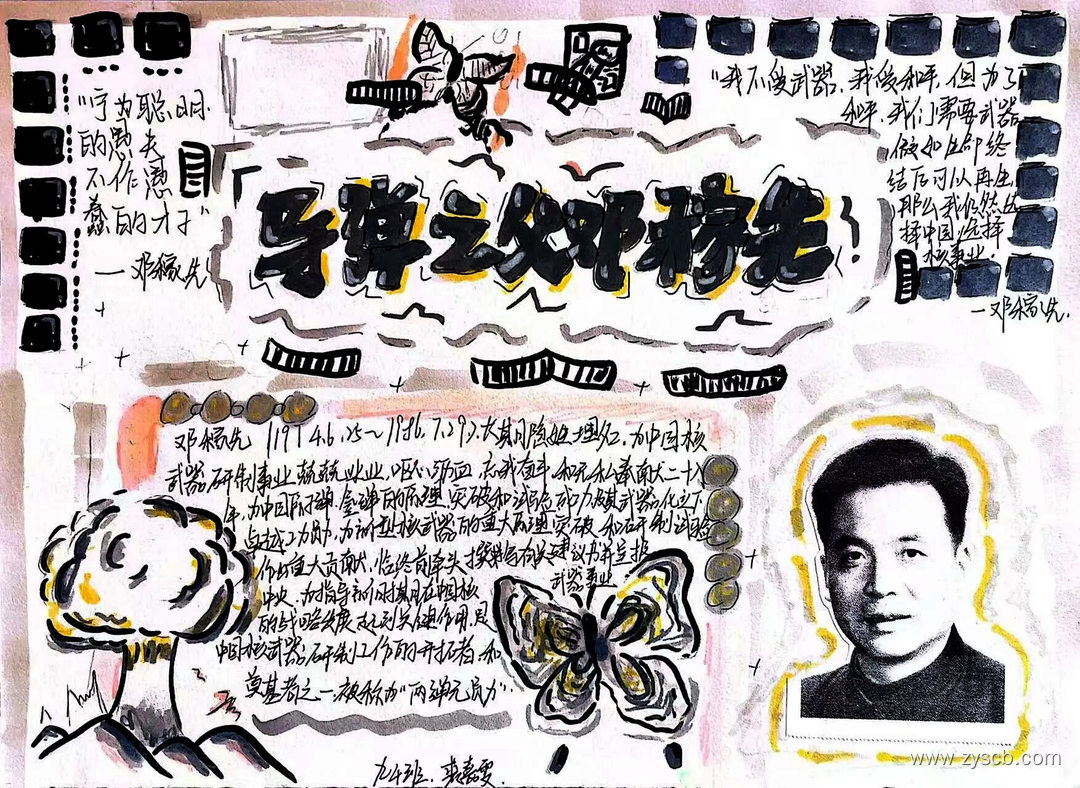 "宁为聪明
的愚夫
不作愚
蠢的才子"
—邓稼先
"我不爱武器,我爱和平,但为了
和平,我们需要武器
假如生命终
结后可以再生,
那么我仍然选
择中国,选择
核事业.
—邓稼先.
导弹之父邓稼先
邓稼先 (1914.6.25~1986.7.29),
为中国核
武器研制事业兢兢业业,呕心沥血,忘我奋斗,和无私奉献二十八
年,为中国原子弹、氢弹的原理突破和试验成功及其武器化立下
卓越功勋,为新型核武器的重大原理突破和研制试验
作出重大贡献,临终前牵头
建议书并呈报
武器事业
中央,为指导
中国核
的战略发展起到关键作用,是
中国核武器研制工作的开拓者和
奠基者之一被称为"两弹元勋".
九4班.
www.zyscb.com